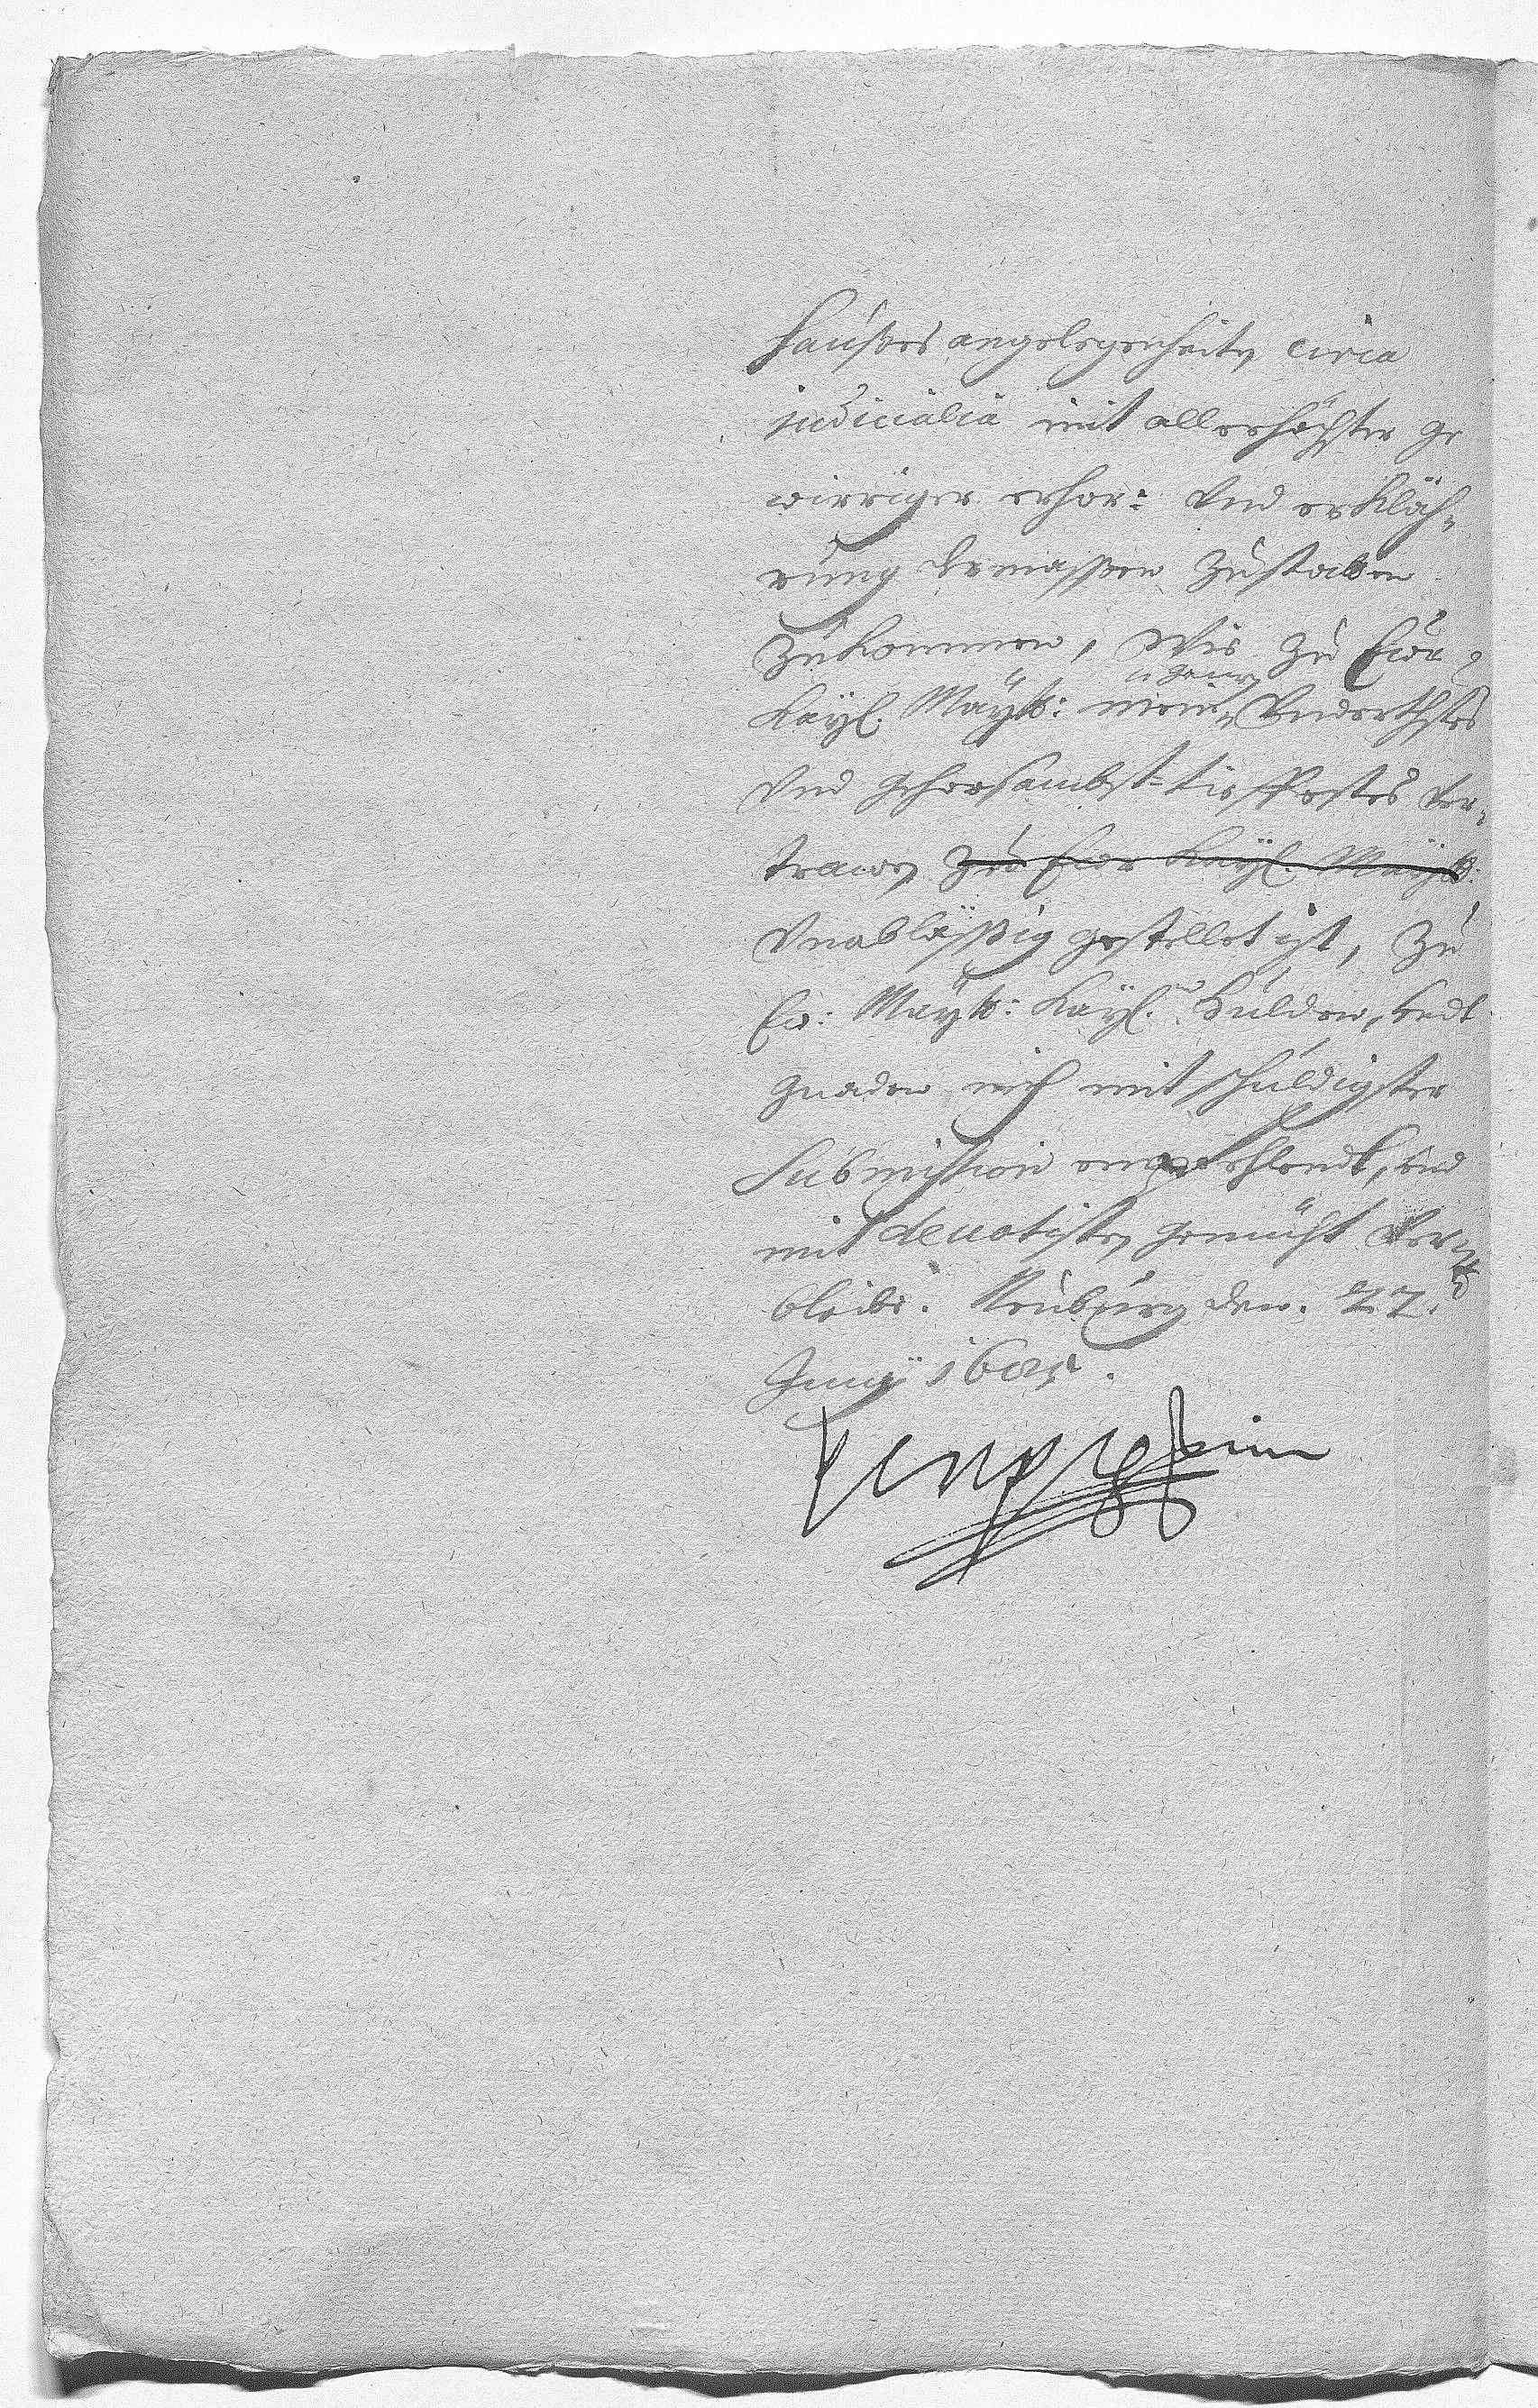 Haußes angelegenheiten circa
judicialia mit allerhöchster ge
wirriger erhör: Vnd erkläh-
rung dermassen zustatten
zukommen, Wie zu Ewr
Kayl. Mayt: mein Vnderthstes
Vnd gehorsambst-tieffestes Ver-
trawen zu Ewr Kayl. Mayt:
Vnabläßig gestellet ist, Zu
Ew: Mayt: Kayl. Hulden, Vndt
gnaden mich mit schuldigster
Submission empfehlendt, und
mit devotisten gemüht Ver-
bleibe. Neuburg den. 27.
Junij 1685.